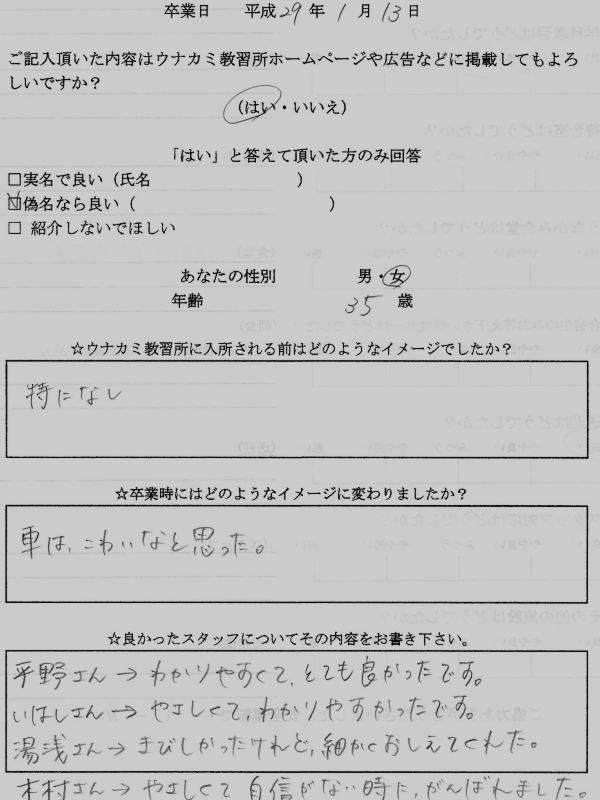 卒業日 平成29年1月13日
ご記入頂いた内容はウナカミ教習所ホームページや広告などに掲載してもよろ
しいですか？
(はい・いいえ)
「はい」と答えて頂いた方のみ回答
□実名で良い（氏名 ）
☑偽名なら良い（ ）
□ 紹介しないでほしい
あなたの性別 男・女
年齢 35 歳
☆ウナカミ教習所に入所される前はどのようなイメージでしたか？
特になし
☆卒業時にはどのようなイメージに変わりましたか？
車は、こわいなと思った。
☆良かったスタッフについてその内容をお書き下さい。
平野さん→わかりやすくて、とても良かったです。
いはしさん→やさしくて、わかりやすかったです。
湯浅さん→きびしかったけれど、細かくおしえてくれた。
木村さん→やさしくて自信がない時に、がんばれました。